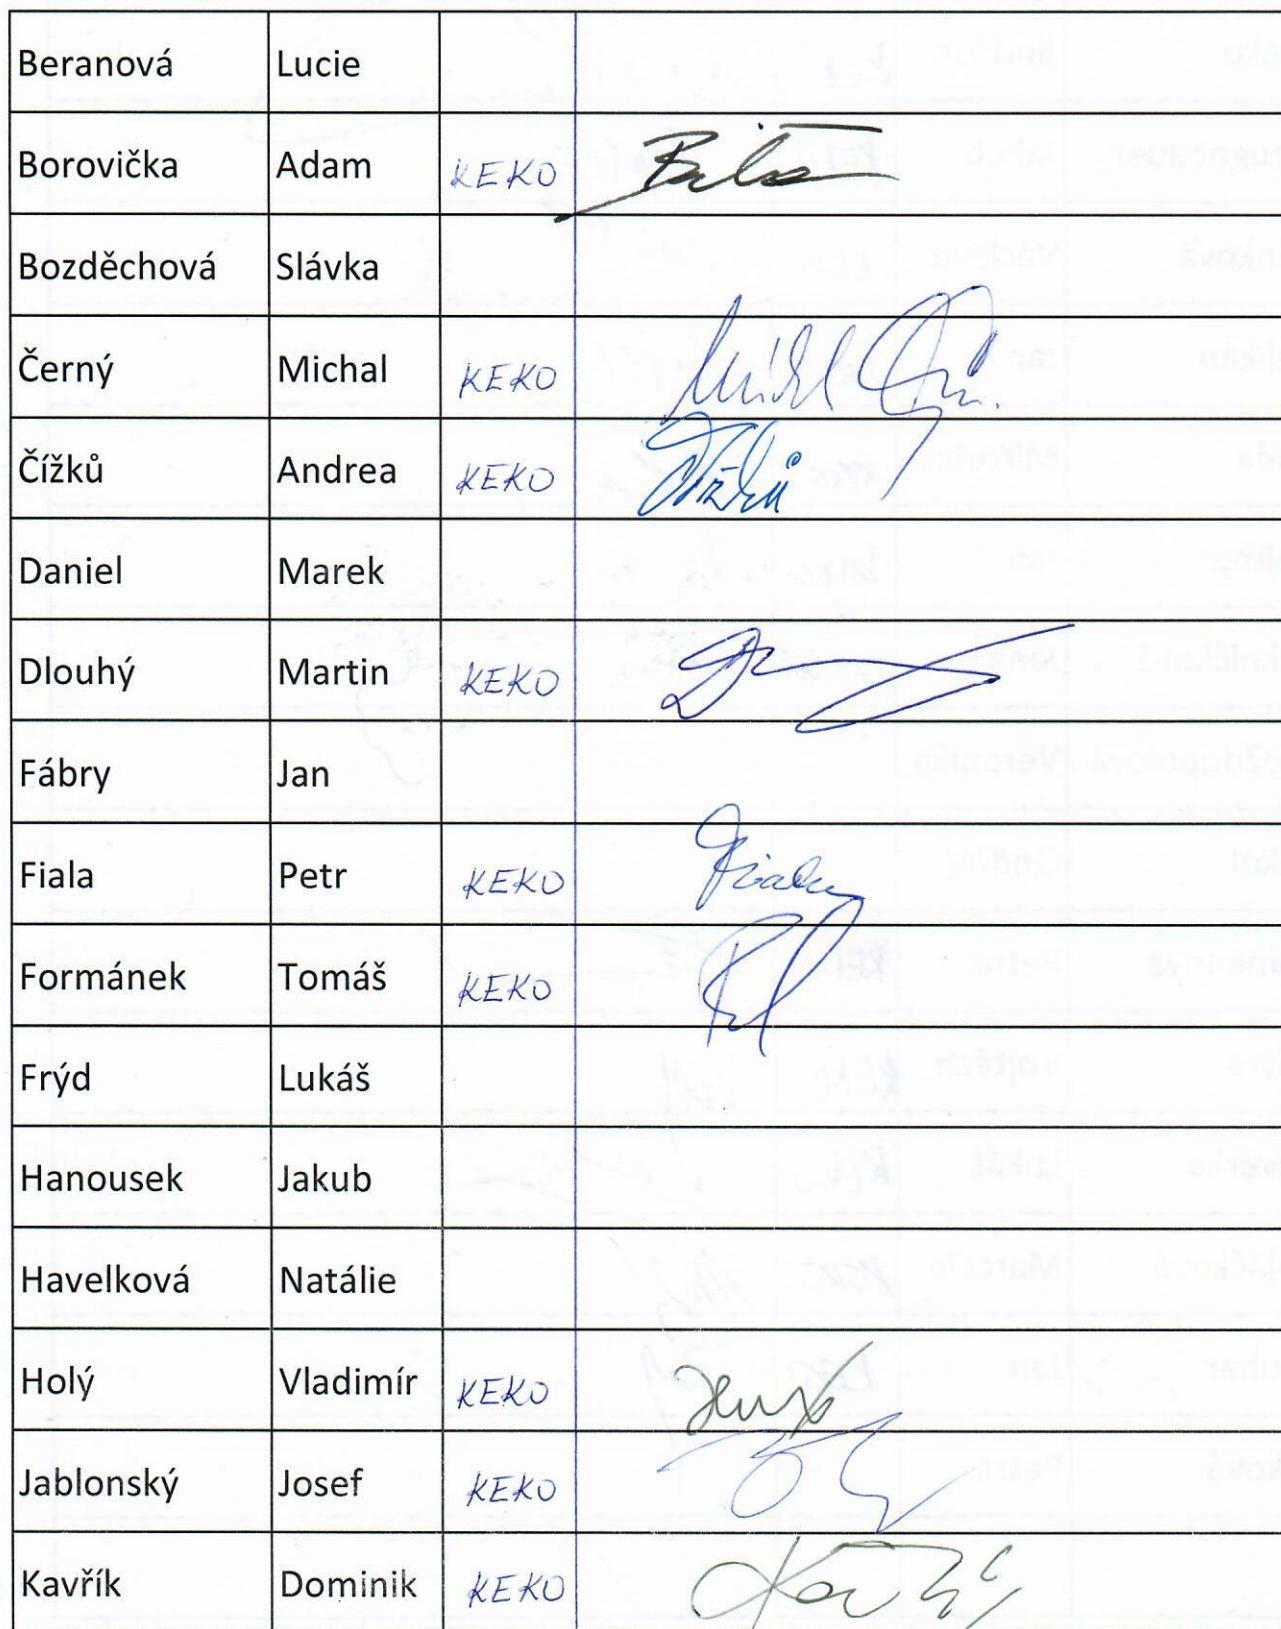 Beranová Lucie
Borovička Adam KEKO
Bozděchová Slávka
Černý Michal KEKO
Čížků Andrea KEKO Čížků
Daniel Marek
Dlouhý Martin KEKO
Fábry Jan
Fiala Petr KEKO Fiala
Formánek Tomáš KEKO
Frýd Lukáš
Hanousek Jakub
Havelková Natálie
Holý Vladimír KEKO
Jablonský Josef KEKO
Kavřík Dominik KEKO